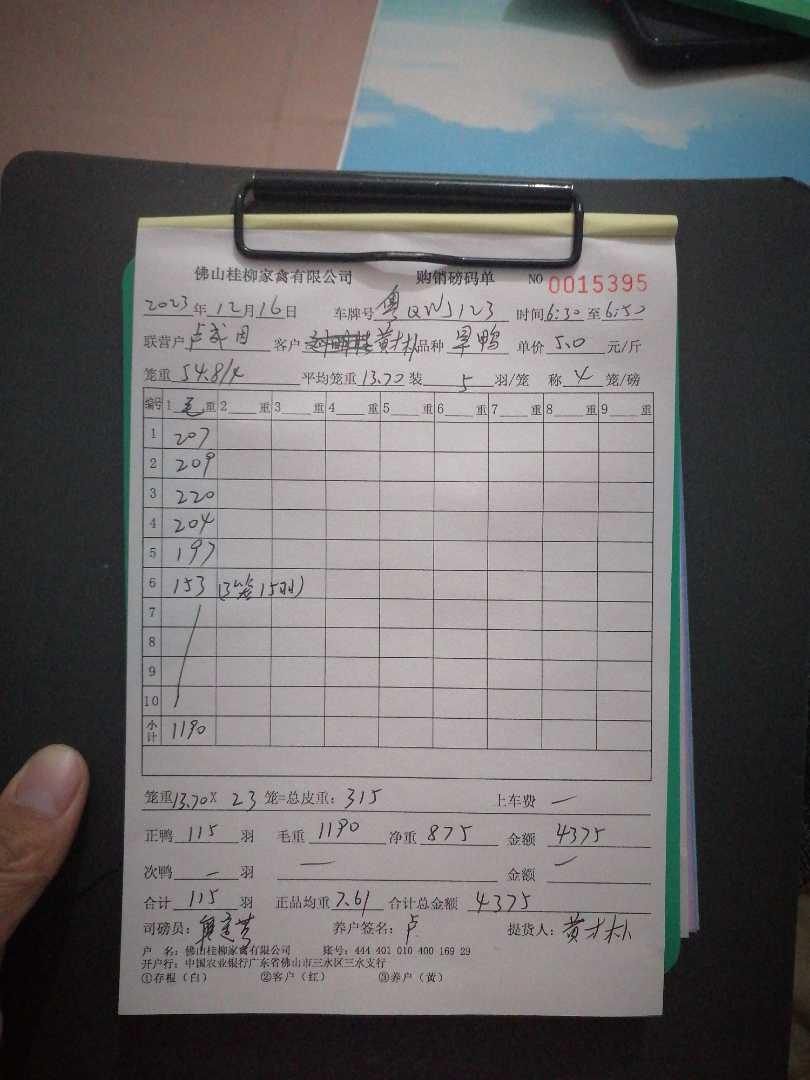 佛山桂柳家禽有限公司 购销磅码单 NO 0015395
2023年12月16日 车牌号 粤QWJ123 时间6:30至6:50
联营户 卢 客户 黄才朴 品种 旱鸭 单价 5.0 元/斤
笼重 54.8/4 平均笼重13.70 装 5 羽/笼 称 4 笼/磅
编号 1 毛 重 2 重 3 重 4 重 5 重 6 重 7 重 8 重 9 重
1 207
2 209
3 220
4 204
5 197
6 153 (3笼15羽)
7
8
9
10
小计 1190
笼重13.70X 23 笼=总皮重：315 上车费 一
正鸭 115 羽 毛重 1190 净重 875 金额 4375
次鸭 一 羽 一 金额 一
合计 115 羽 正品均重 7.61 合计总金额 4375
司磅员： 养户签名：卢 提货人：黄才朴
户 名：佛山桂柳家禽有限公司 账号：444 401 010 400 169 29
开户行：中国农业银行广东省佛山市三水区三水支行
①存根（白） ②客户（红） ③养户（黄）